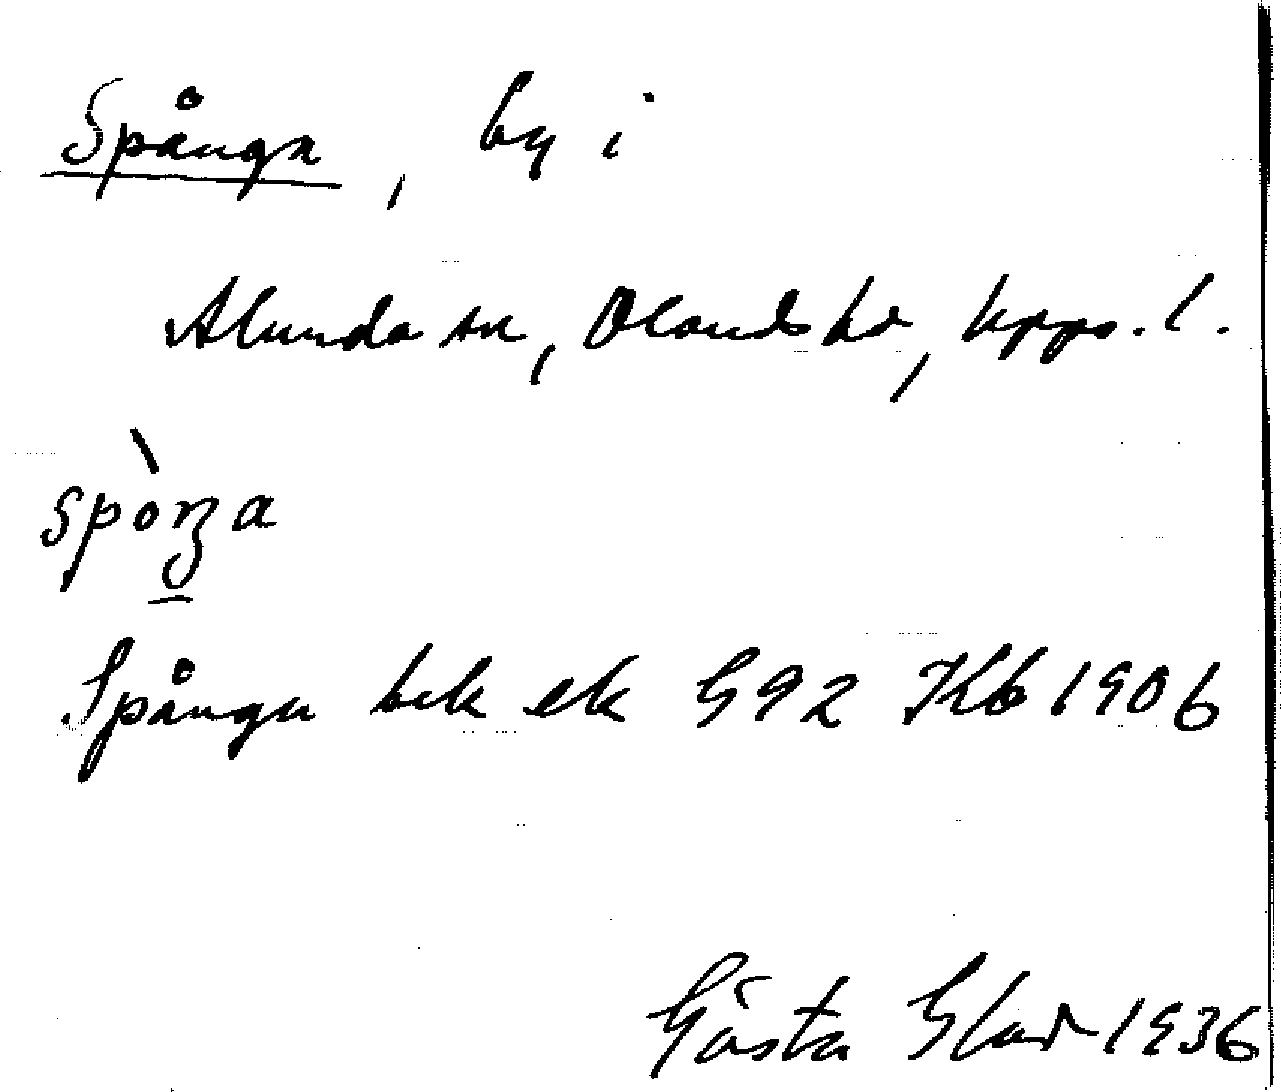 Spånga, by i
Alunda sn, Olands hd, Upps. l.
Spånga bek ek G92 Kb 1906
Gösta 1936